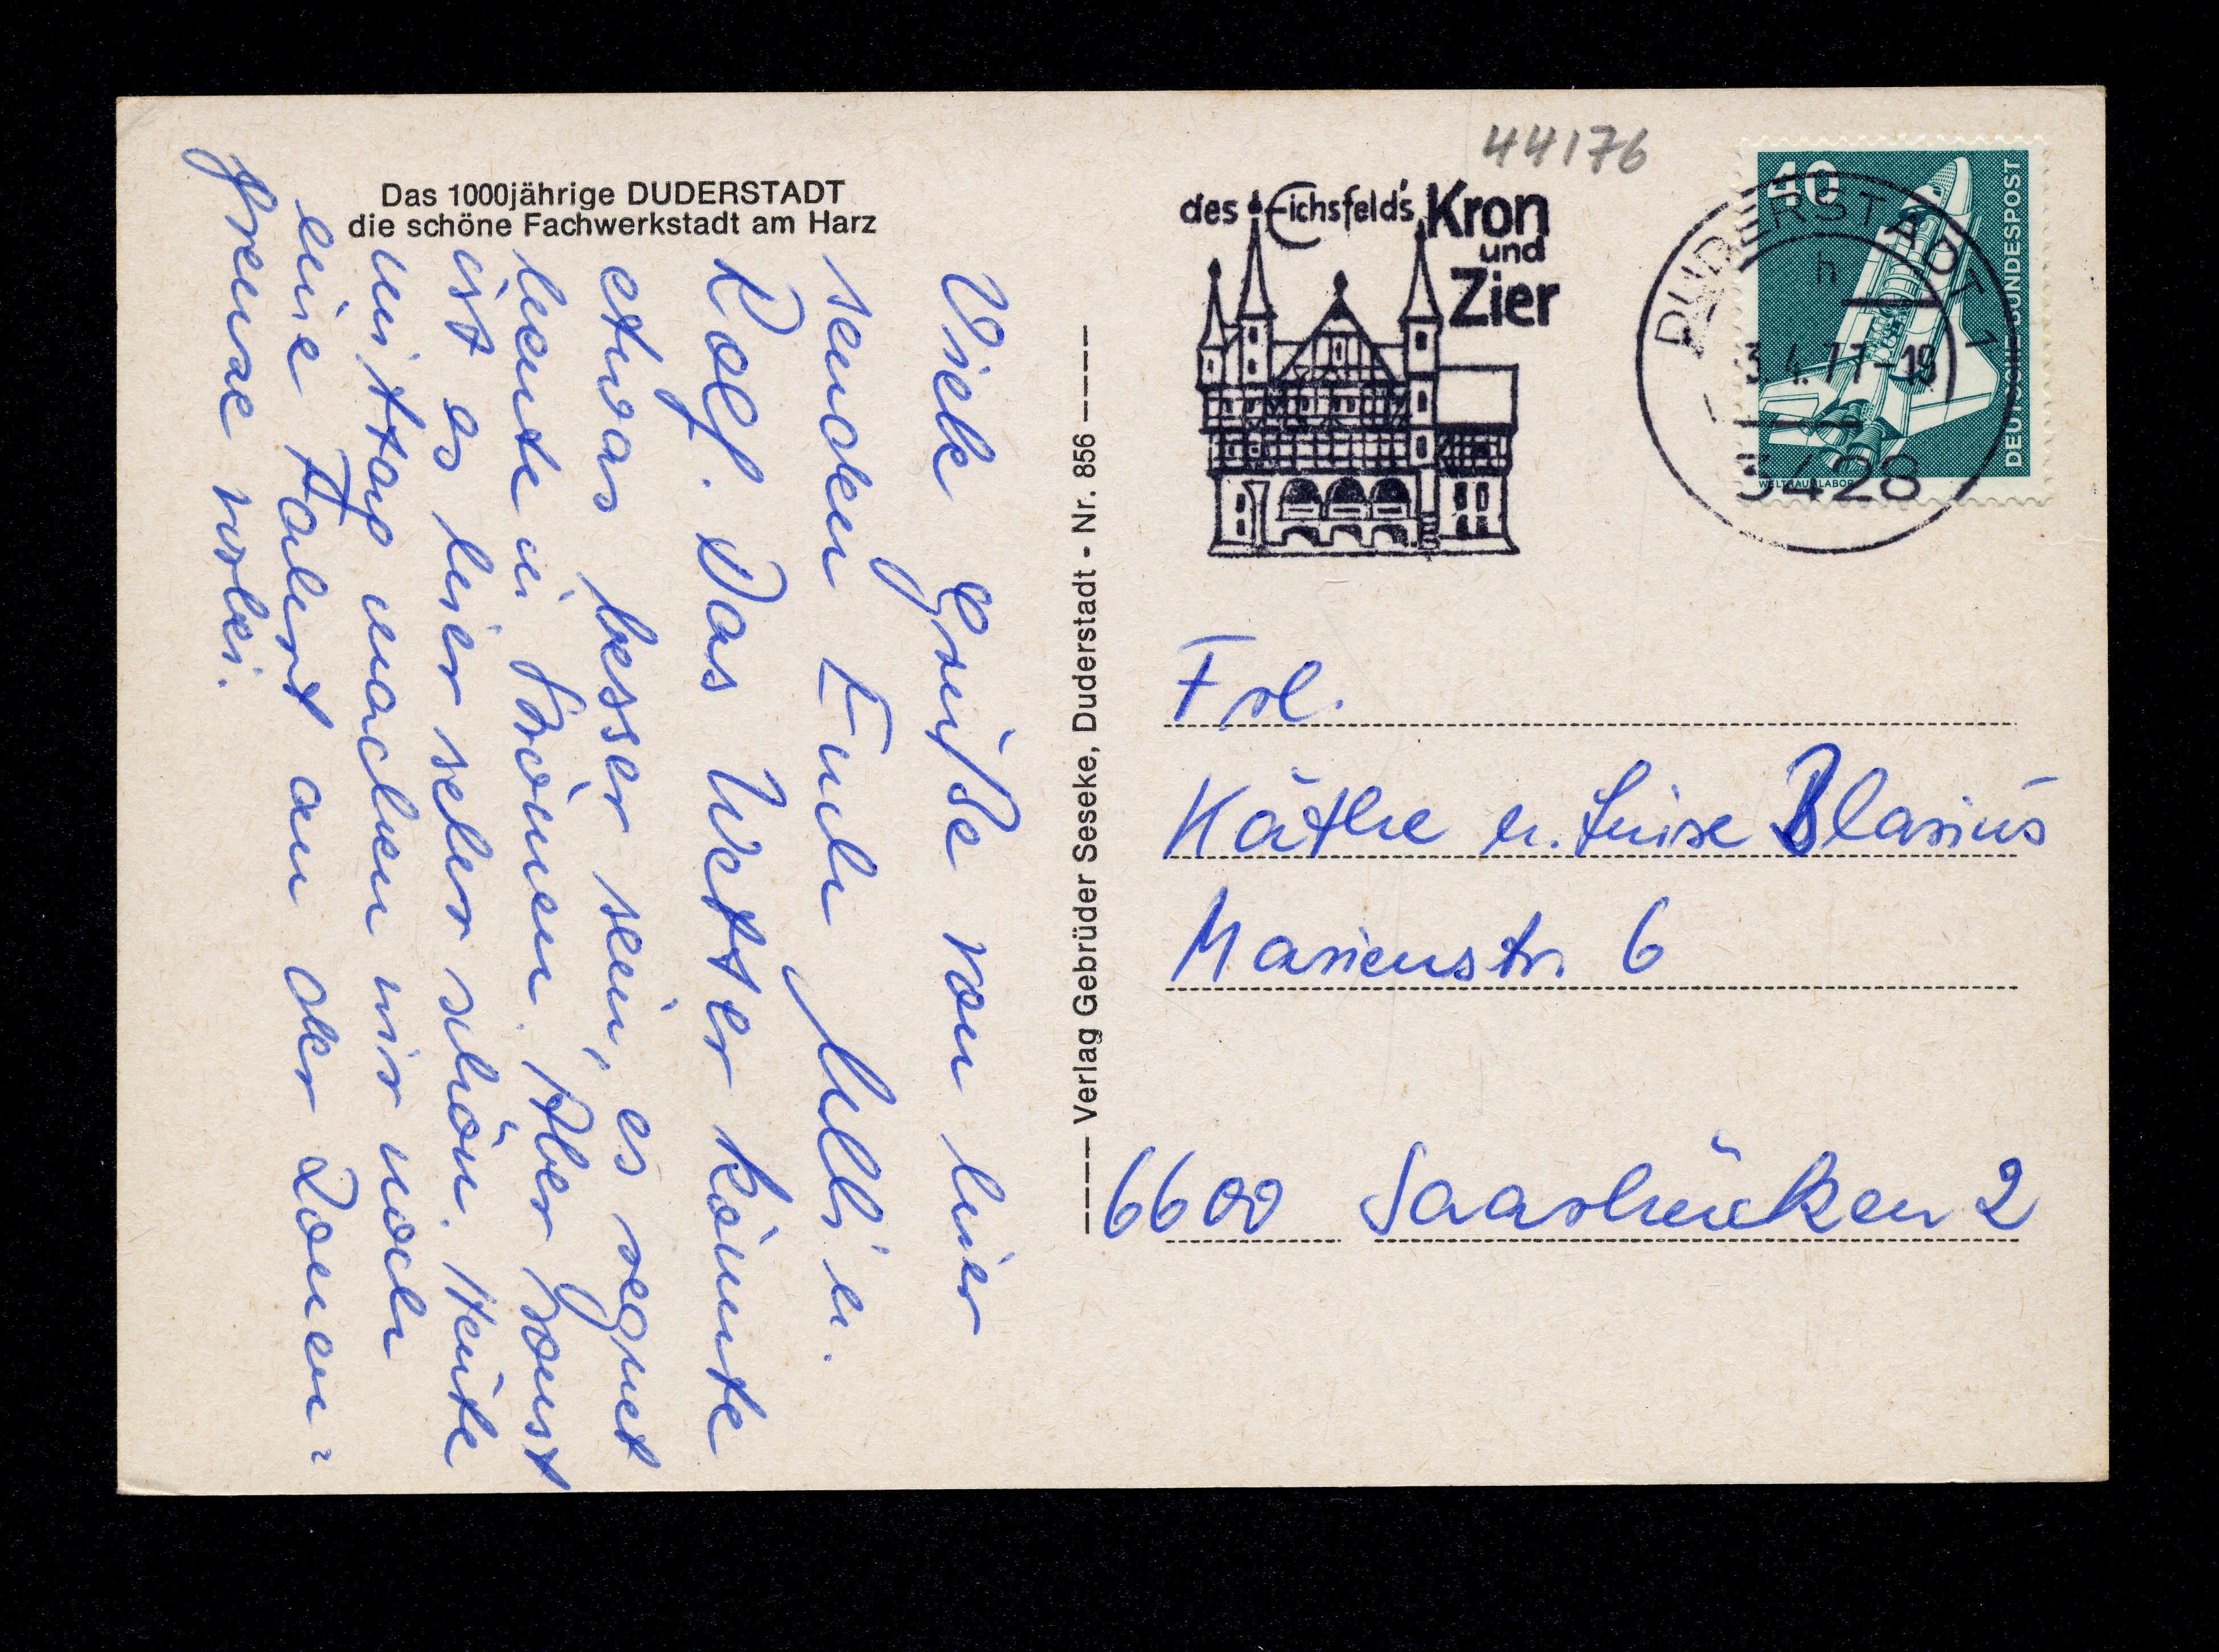 Das 1000jährige DUDERSTADT
die schöne Fachwerkstadt am Harz
Viele Grüße von hier
senden Euch Ulli u.
Rolf. Das Wetter könnte
etwas besser sein, es regnet
heute in Strömen. Aber sonst
ist es hier sehr schön. Heute
mittag machen wir noch
eine Fahrt an der Zonen-
grenze vorbei.
Verlag Gebrüder Seseke, Duderstadt - Nr. 856
44176
des Eichsfeld's Kron
und
Zier
40
DEUTSCHE BUNDESPOST
WELTRAUMLABOR
DUDERSTADT 1
h
3.4.77-19
3428
Frl.
Käthe u. Luise Blasius
Marienstr. 6
6600 Saarbrücken 2